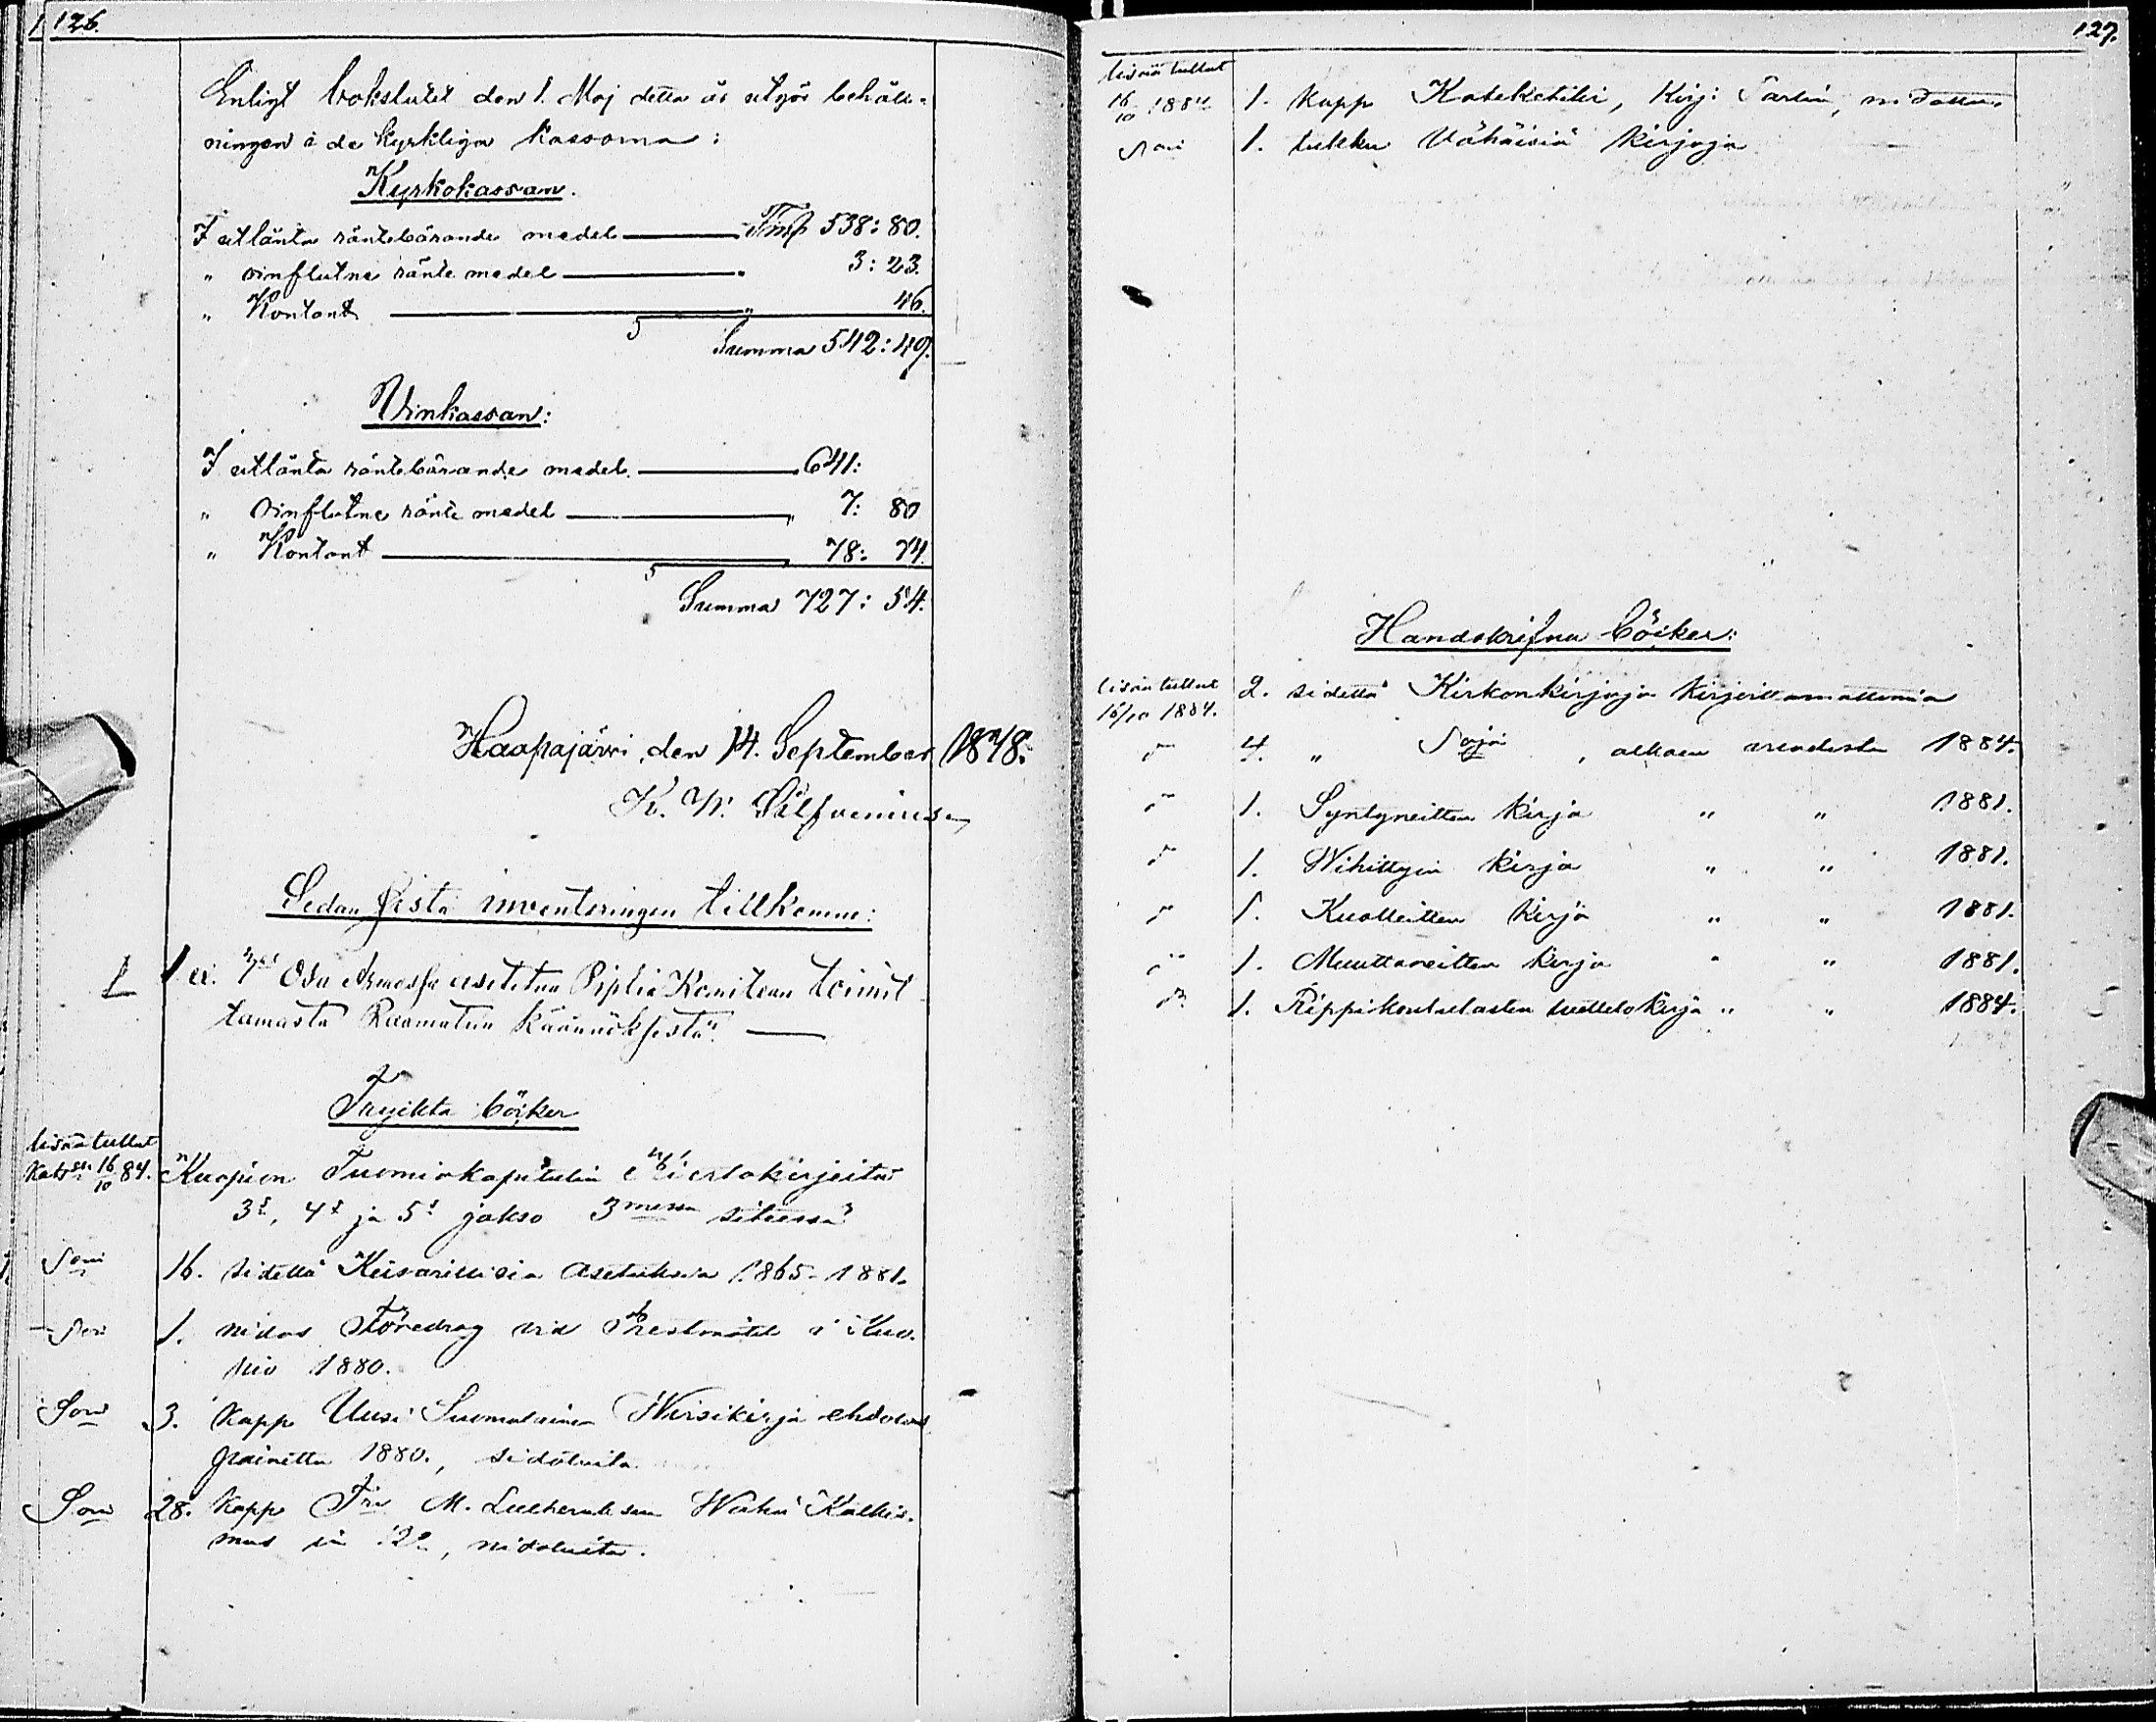 126.
Enligt bokslutet den 1. Maj detta år utgör behåll-
ningen i de kyrkliga kassorna:
Kyrkokassan.
I utlånta räntebärande medel Fmk 538:80.
" influtne ränte medel " 3:23.
" Kontant " 46.
Summa 542:49.
Vinkassan:
I utlånta räntebärande medel 641:
" influtne ränte medel " 7: 80
" Kontant " 78: 74.
Summa 727: 54.
Haapajärvi, den 14. September 1878.
K. W. Silfvenius
Sedan sista inventeringen tillkomne:
1 ex. Osa Armossa asetetun Piplia Komitean toimit
tamasta Raamatun käännöksestä.
Tryckta böcker
lisää tullut
16/10 84. Kuopion Tuomiokapitulin Kiertokirjeitä
3s, 4s ja 5s jakso 3messa siteessä
16. sidettä Keisarillisia Asetuksia 1865-1881.
1. nidos Föredrag vid Prestmötet i Kuo-
pio 1880.
3. kapp Uusi Suomalainen Wirsikirja ehdotus
painettu 1880., sidotuita
28. kapp Tri M. Lutheruksen Wähä Katkis-
mus in 12o, nidotuita.
127.
lisää tullut
16/10 1884. 1. kapp Katekehihi, Kirj:
1. lukku Vähäisiä kirjoja
Handskrifna böcker:
lisää tullut 2. sidettä Kirkonkirjoja kirjoittamattomia
16/10 1884.
4. " , alkaen vuodesta 1884.
1. Syntyneitten kirja " " 1881.
1. Wihittyin kirja " " 1881.
1. Kuolleitten kirja " " 1881.
1. Muuttaneitten kirja " " 1881.
1. Rippikoululasten luettelokirja " " 1884.